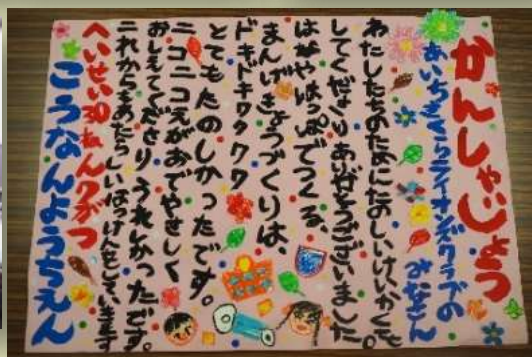 かんしゃじょう
あいちさくらライオンズクラブの
みなさん
わたしたちのためにたのしいけいかくを
してくださりありがとうございました。
はなやはっぱでつくる、
まんげきょうづくりは、
ドキドキワクワク
とてもたのしかったです。
ニコニコえがおでやさしく
おしえてくださりうれしかったです。
これからもあたらしいはっけんをしていきます
へいせい30ねん9がつ
こうなんようちえん